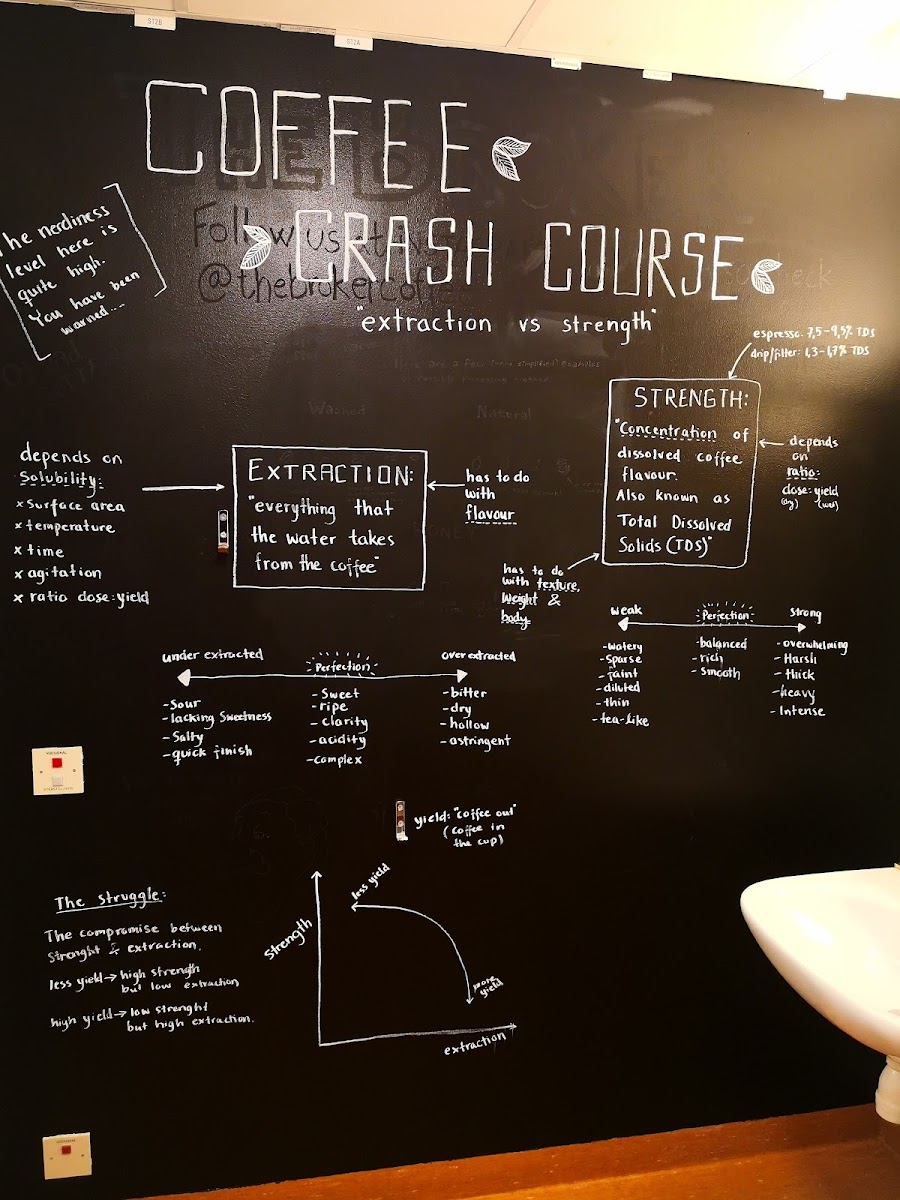 ST2B
ST2A
COFFEE
CRASH COURSE
"extraction vs strength"
Follow us at
@thebrokercoffee
he nerdiness
level here is
quite high.
You have been
warned....
espresso: 7,5-9,5% TDS
drip/filter: 1,3-1,7% TDS
STRENGTH:
"Concentration of
dissolved coffee
flavour.
Also known as
Total Dissolved
Solids (TDS)"
depends
on
ratio:
dose:yield
(dry) (wet)
has to do
with texture,
weight &
body
Washed
Natural
depends on
Solubility:
x Surface area
x temperature
x time
x agitation
x ratio dose:yield
EXTRACTION:
"everything that
the water takes
from the coffee"
has to do
with
flavour
under extracted
Perfection
over extracted
- Sour
- lacking Sweetness
- Salty
- quick finish
- Sweet
- ripe
- clarity
- acidity
- complex
- bitter
- dry
- hollow
- astringent
weak
Perfection
strong
- watery
- Sparse
- faint
- diluted
- thin
- tea-like
- balanced
- rich
- smooth
- overwhelming
- Harsh
- thick
- heavy
- Intense
yield: "coffee out"
(coffee in
the cup)
The struggle:
The compromise between
strenght & extraction.
less yield → high strength
but low extraction
high yield → low strenght
but high extraction.
Strength
less yield
more
yield
extraction